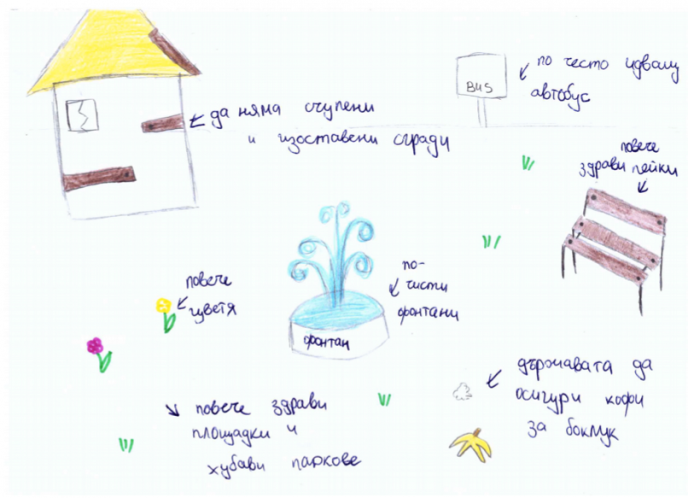 да няма счупени
и изоставени сгради
BUS
по често идващ
автобус
повече
здрави пейки
по-
чисти
фонтани
фонтан
повече
цветя
държавата да
осигури кофи
за боклук
повече здрави
площадки и
хубави паркове